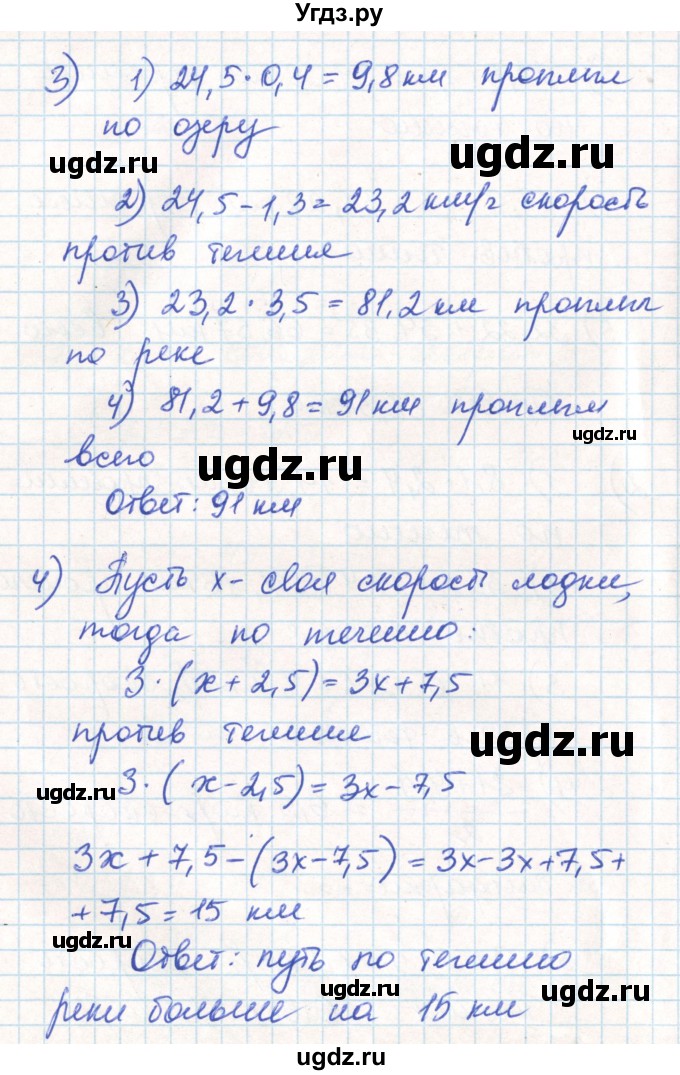 Угдз.ру
3) 1) 24,5·0,4 = 9,8 км проплыл
по озеру
ugdz.ru
ugdz.ru
2) 24,5-1,3=23,2 км/г скорость
против течения
3) 23,2·3,5 = 81,2 км проплыл
по реке
4) 81,2+9,8=91 км проплыли
ugdz.ru
всего
ugdz.ru
Ответ: 91 км
4) Пусть x- своя скорость лодки,
тогда по течению:
3·(x+2,5)=3x+7,5
против течения
ugdz.ru
3·(x-2,5)=3x-7,5
ugdz.ru
3x+7,5-(3x-7,5)=3x-3x+7,5+
+7,5=15 км
ugdz.ru
Ответ: путь по течению
ugdz.ru
ugdz.ru
реки больше на 15 км
ugdz.ru